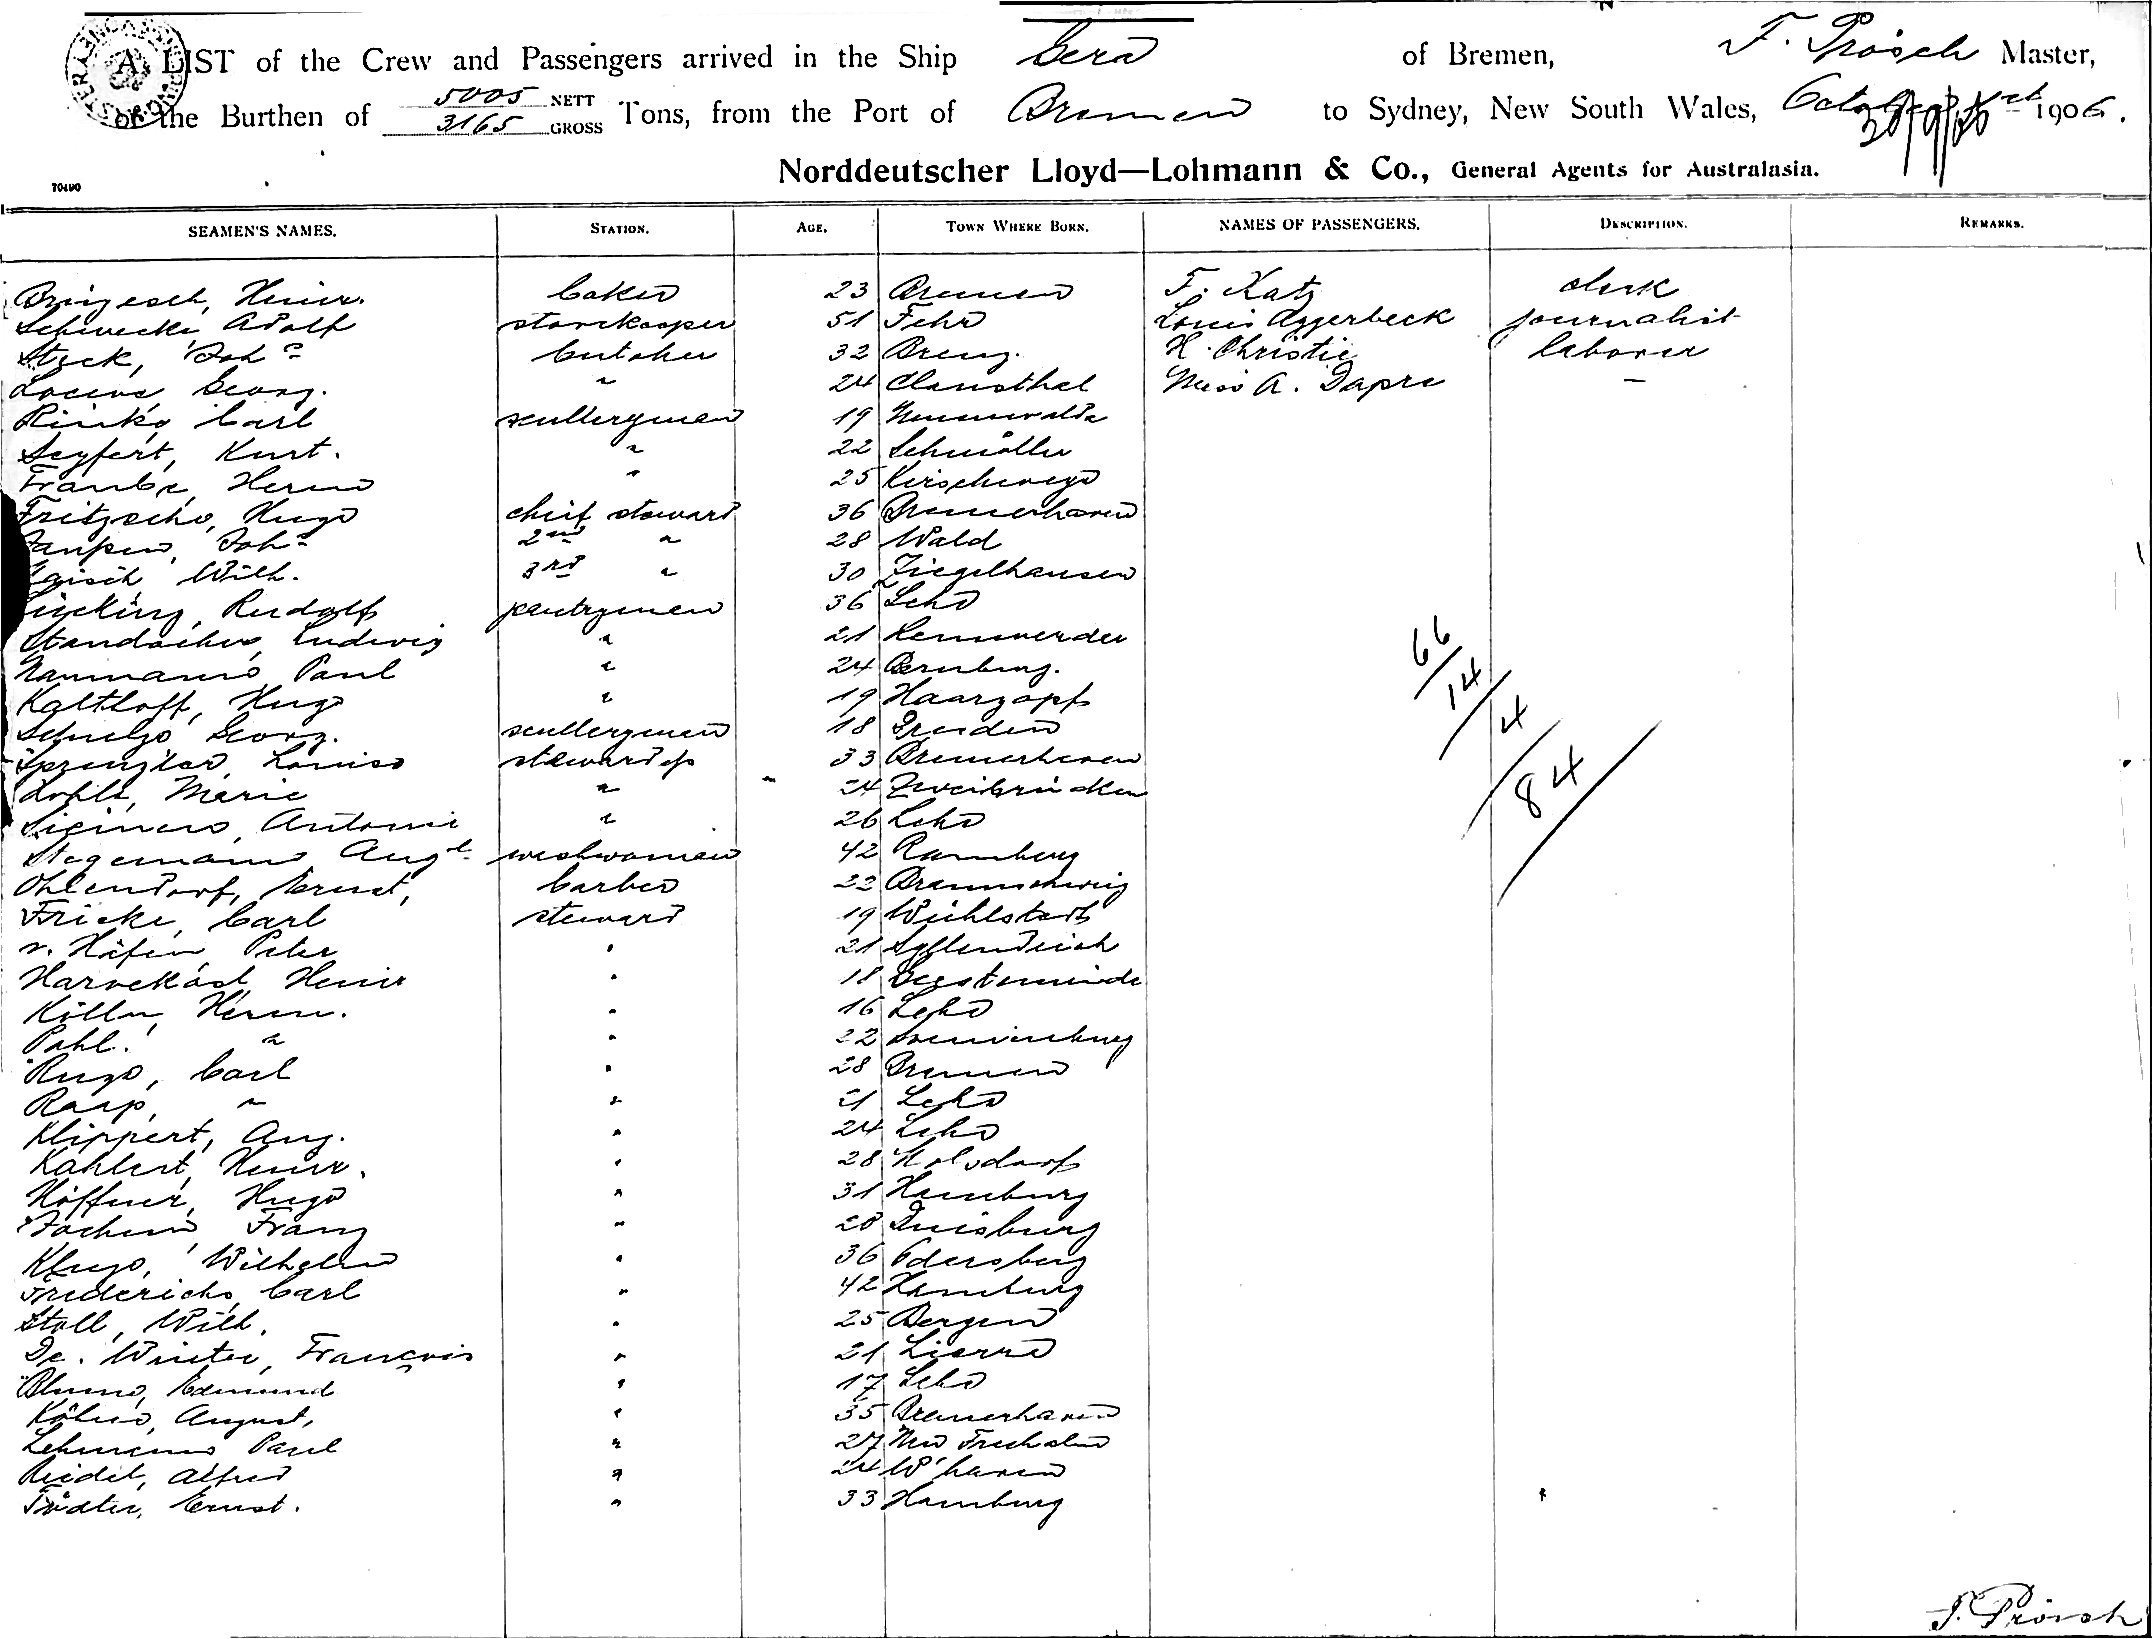 A LIST of the Crew and Passengers arrived in the Ship Gera of Bremen, F. Prösch Master,
of the Burthen of 5005 NETT 3165 GROSS Tons, from the Port of Bremen to Sydney, New South Wales, 1906.
Norddeutscher Lloyd—Lohmann & Co., General Agents for Australasia.
70490
SEAMEN'S NAMES. STATION. AGE. TOWN WHERE BORN. NAMES OF PASSENGERS. DESCRIPTION. REMARKS.
Heinr. baker 23 Bremen F. Katz clerk
Adolf storekeeper 51 Louis Eggerbeck journalist
Joh. butcher 32 H. Christie laborer
Georg. " 24 Clausthal Miss A. Dapre —
Carl scullerymen 19
Seyfert, Kurt. " 22 Schmölln
Franke, Herm " 25
Fritzsche, Hugo chief steward 36 Bremerhaven
Joh. 2nd " 28 Wald
Wilh. 3rd " 30 Ziegelhausen
Rudolf pantrymen 36 Lehe
Ludwig " 21 Lemwerder
Naumann, Paul " 24 Bernburg.
Kalthoff, Hugo " 19 Haarzopf
Schulze, Georg. scullerymen 18 Dresden
Sprengler, Louise stewardess 33 Bremerhaven
Marie " 24 Zweibrücken
Antonie " 26 Lehe
Stegemann, Aug. washwoman 42 Ramberg
Ohlendorf, Ernst, barber 22 Braunschweig
Fricke, Carl steward 19
v. Häfen, Peter " 21
Heinr " 18 Geestemünde
Kölln, Herm. " 16 Lehe
Pohl. " " 22
Carl " 28 Bremen
Raap, " " 21 Lehe
Klippert, Aug. " 24 Lehe
Kahlert, Heinr. " 28
Höffner, Hugo " 31 Hamburg
Jochem, Franz " 28 Duisburg
Kluge, Wilhelm " 36 Edersberg
Friederichs, Carl " 42 Hamburg
Stoll, Wilh. " 25 Bergen
De. Winter, François " 21 Lierre
Blume, Edmund " 17 Lehe
August, " 35 Bremerhaven
Lehmann, Paul " 27
Riedel, Alfred " 24 W'haven
Tödter, Ernst. " 33 Hamburg
66
14
4
84
F. Prösch